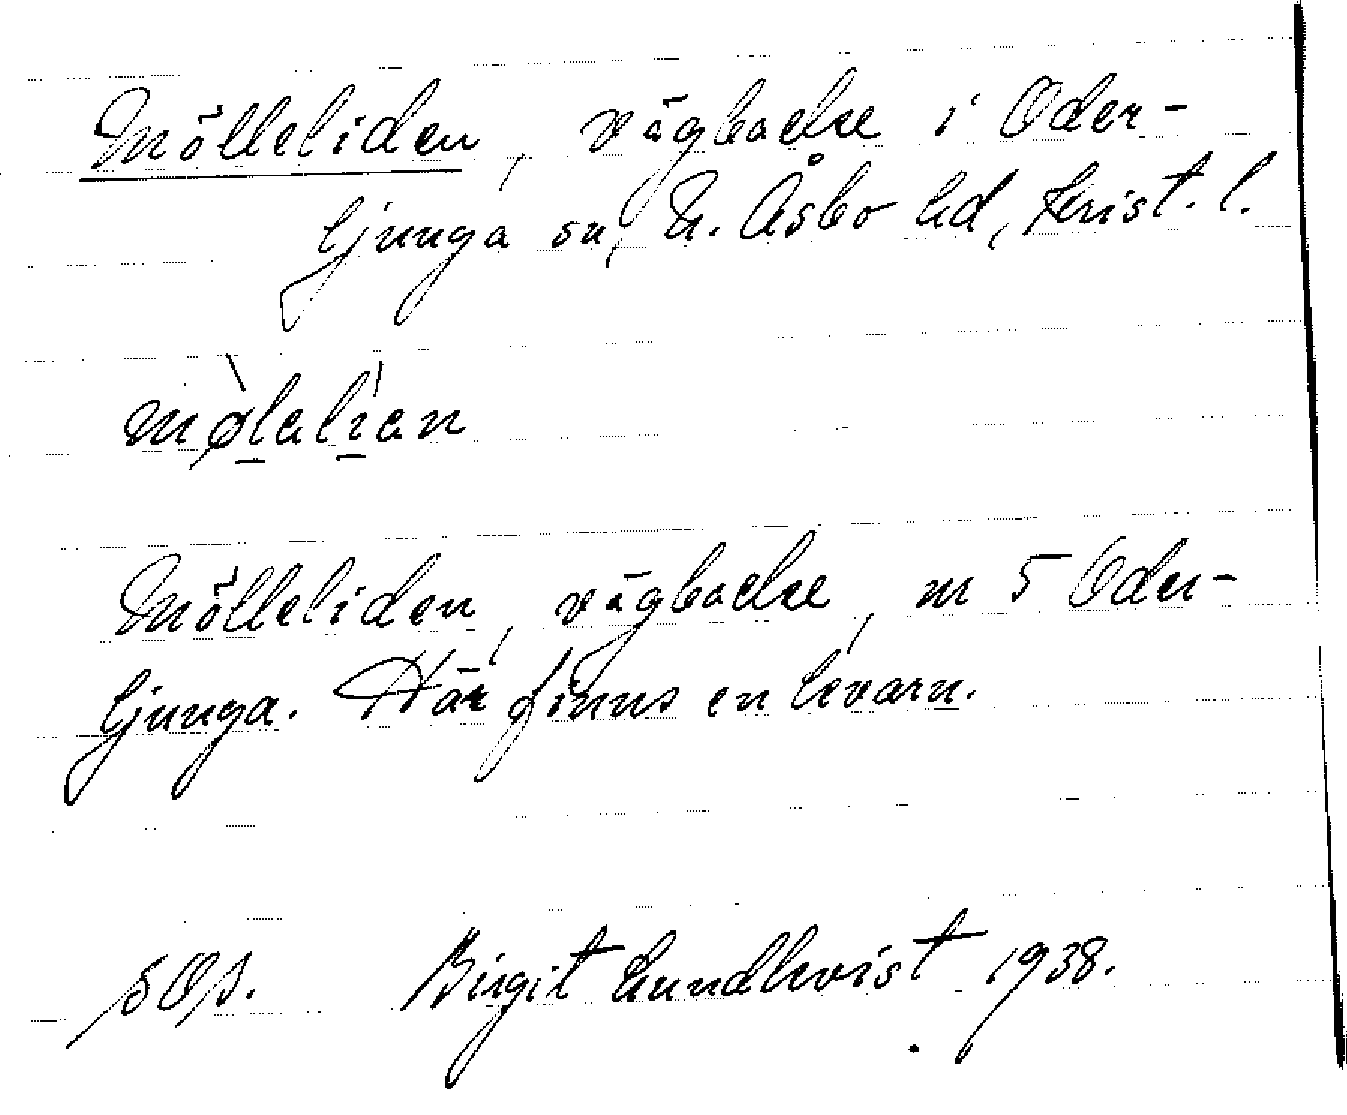 Mölleliden, vägbacke i Oder-
ljunga sn, N. Åsbo hd, Krist. l.
mø̀lelían
Mölleliden, vägbacke, m 5 Oder-
ljunga. Här finns en kvarn.
Birgit Lundkvist 1938.